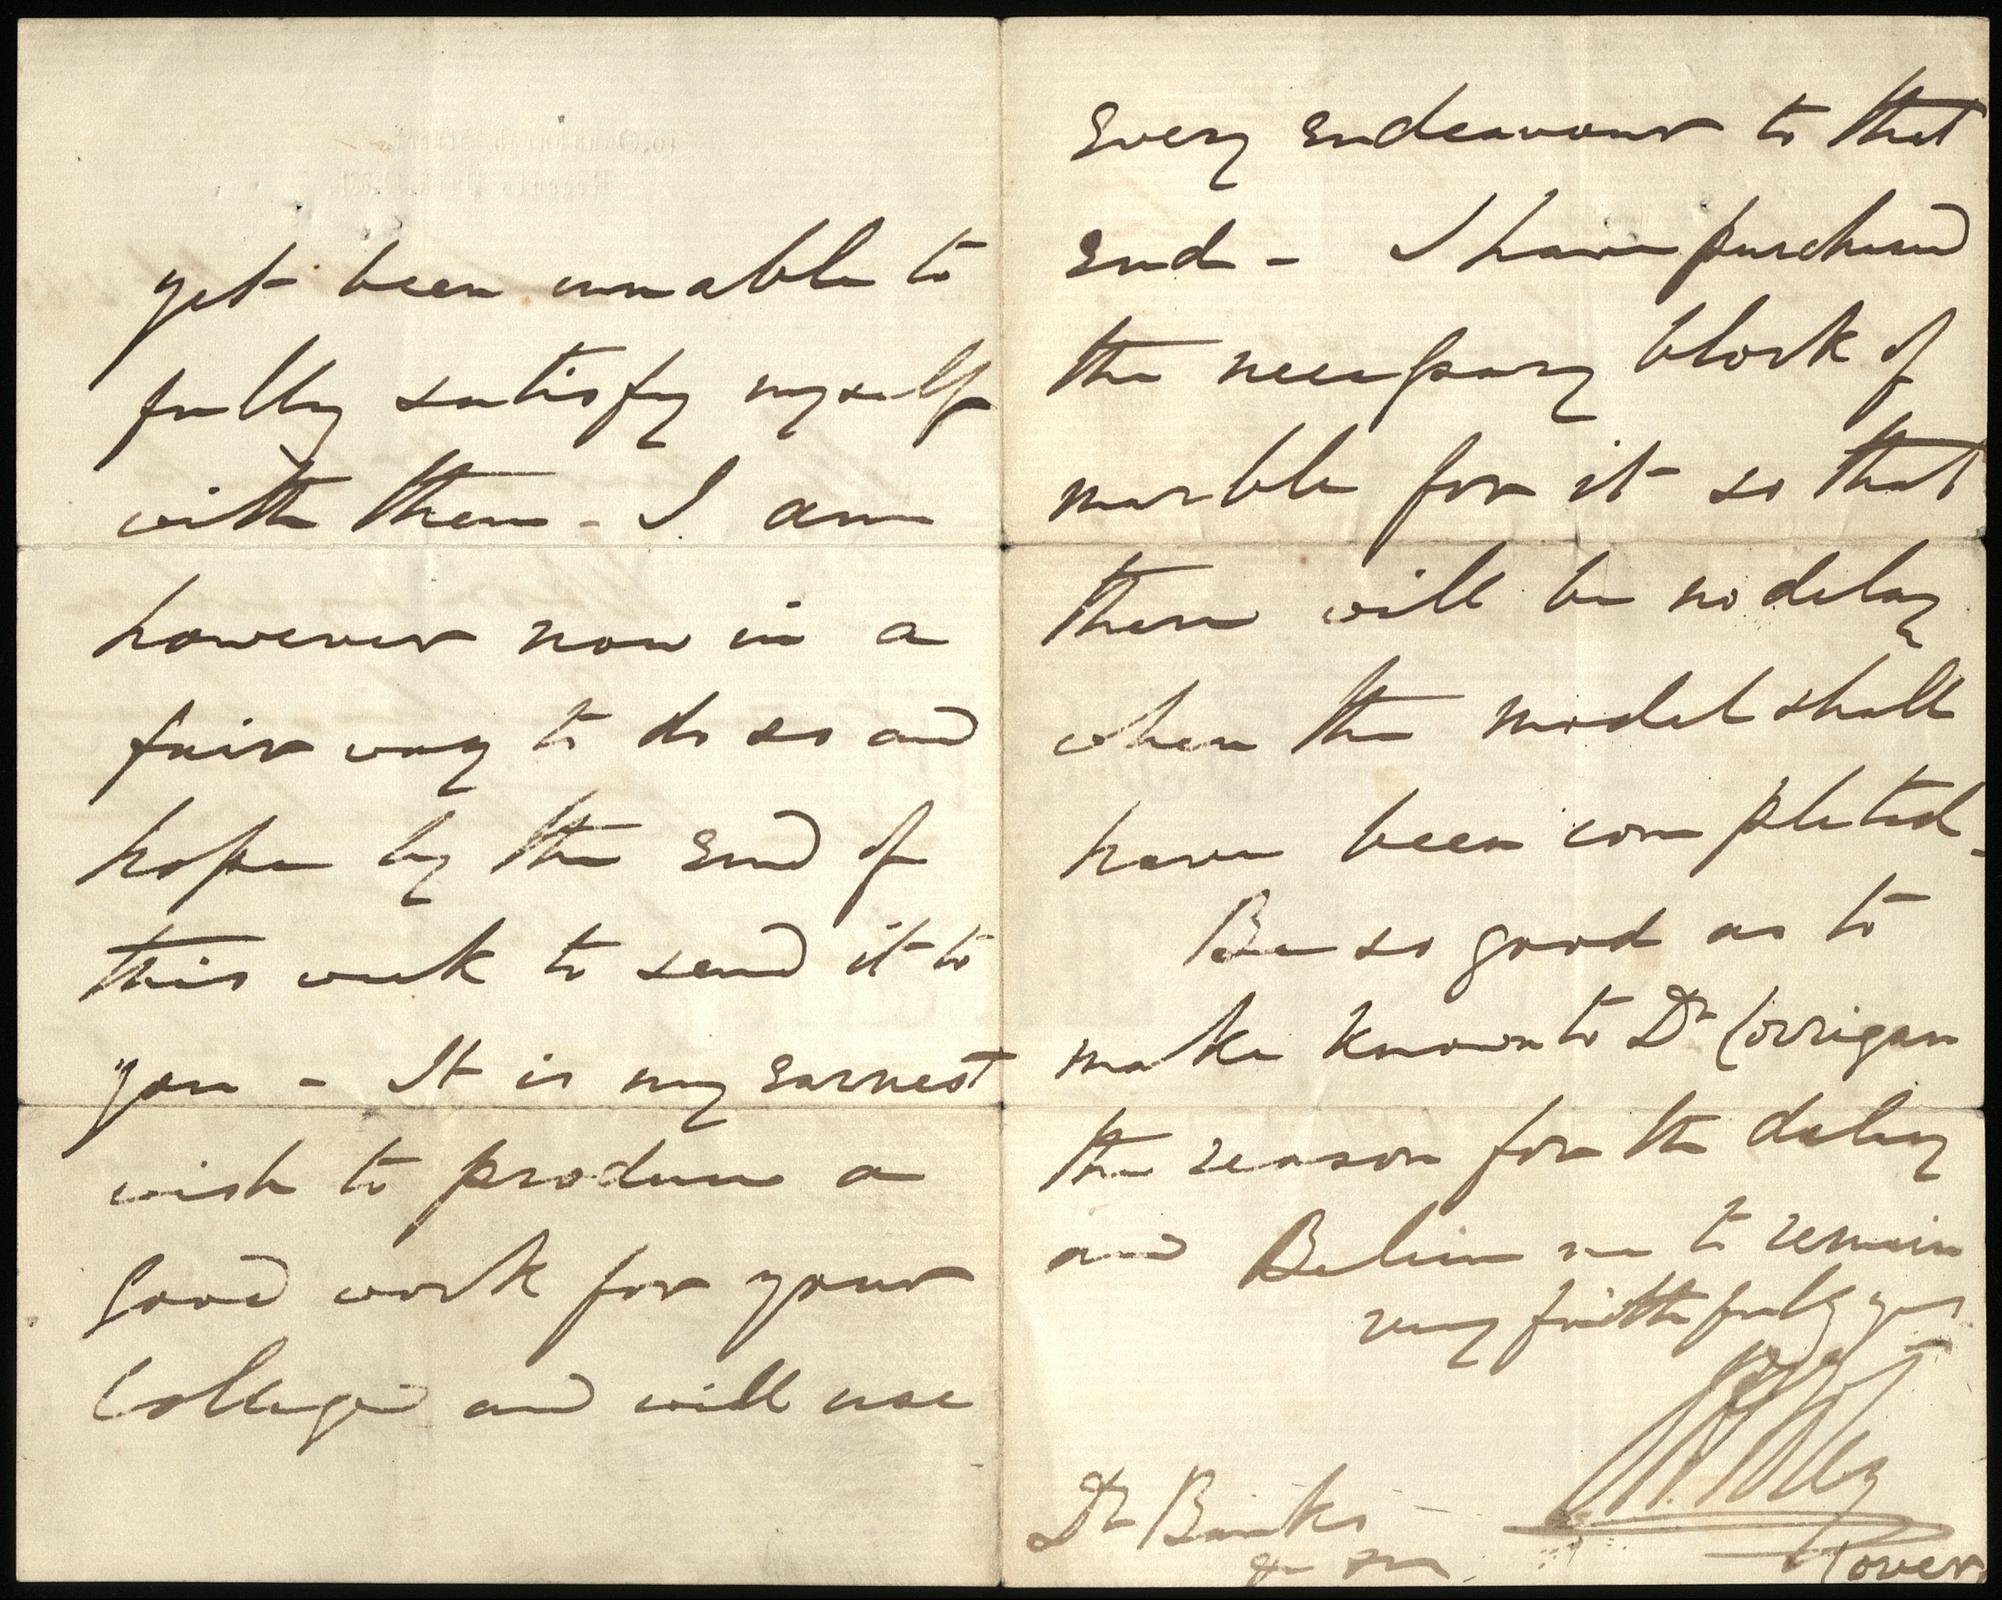 yet been unable to
fully satisfy myself
with them - I am
however now in a
fair way to do so and
hope by the end of
this week to send it to
you - It is my earnest
wish to produce a
good work for your
College and will use
every endeavour to that
end - I have purchased
the necessary block of
marble for it so that
there will be no delay
when the model shall
have been completed -
Be so good as to
make known to Dr Corrigan
the reason for the delay
and Believe me to remain
very faithfully yours
Foley
Dr Banks
&c &c
(over